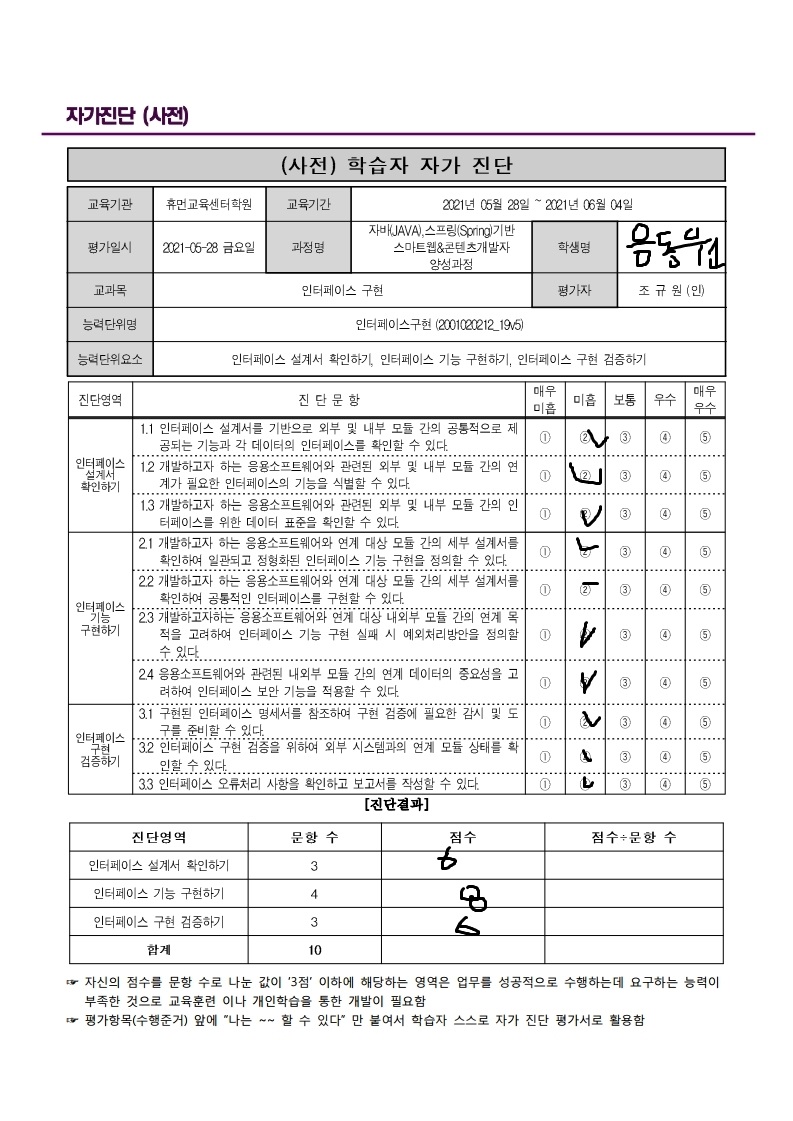 자가진단 (사전)
(사전) 학습자 자가 진단
교육기관 휴먼교육센터학원 교육기간 2021년 05월 28일 ~ 2021년 06월 04일
평가일시 2021-05-28 금요일 과정명 자바(JAVA),스프링(Spring)기반
스마트웹&콘텐츠개발자
양성과정
학생명
교과목 인터페이스 구현 평가자 조 규 원 (인)
능력단위명 인터페이스구현 (2001020212_19v5)
능력단위요소 인터페이스 설계서 확인하기, 인터페이스 기능 구현하기, 인터페이스 구현 검증하기
진단영역 진 단 문 항 매우 미흡 미흡 보통 우수 매우 우수
인터페이스 설계서 확인하기
1.1 인터페이스 설계서를 기반으로 외부 및 내부 모듈 간의 공통적으로 제
공되는 기능과 각 데이터의 인터페이스를 확인할 수 있다.
① ② ③ ④ ⑤
1.2 개발하고자 하는 응용소프트웨어와 관련된 외부 및 내부 모듈 간의 연
계가 필요한 인터페이스의 기능을 식별할 수 있다.
① ② ③ ④ ⑤
1.3 개발하고자 하는 응용소프트웨어와 관련된 외부 및 내부 모듈 간의 인
터페이스를 위한 데이터 표준을 확인할 수 있다.
① ② ③ ④ ⑤
인터페이스 기능 구현하기
2.1 개발하고자 하는 응용소프트웨어와 연계 대상 모듈 간의 세부 설계서를
확인하여 일관되고 정형화된 인터페이스 기능 구현을 정의할 수 있다.
① ② ③ ④ ⑤
2.2 개발하고자 하는 응용소프트웨어와 연계 대상 모듈 간의 세부 설계서를
확인하여 공통적인 인터페이스를 구현할 수 있다.
① ② ③ ④ ⑤
2.3 개발하고자하는 응용소프트웨어와 연계 대상 내외부 모듈 간의 연계 목
적을 고려하여 인터페이스 기능 구현 실패 시 예외처리방안을 정의할
수 있다.
① ② ③ ④ ⑤
2.4 응용소프트웨어와 관련된 내외부 모듈 간의 연계 데이터의 중요성을 고
려하여 인터페이스 보안 기능을 적용할 수 있다.
① ② ③ ④ ⑤
인터페이스 구현 검증하기
3.1 구현된 인터페이스 명세서를 참조하여 구현 검증에 필요한 감시 및 도
구를 준비할 수 있다.
① ② ③ ④ ⑤
3.2 인터페이스 구현 검증을 위하여 외부 시스템과의 연계 모듈 상태를 확
인할 수 있다.
① ② ③ ④ ⑤
3.3 인터페이스 오류처리 사항을 확인하고 보고서를 작성할 수 있다.
① ② ③ ④ ⑤
[진단결과]
진단영역 문항 수 점수 점수÷문항 수
인터페이스 설계서 확인하기 3 6
인터페이스 기능 구현하기 4 8
인터페이스 구현 검증하기 3 6
합계 10
☞ 자신의 점수를 문항 수로 나눈 값이 '3점' 이하에 해당하는 영역은 업무를 성공적으로 수행하는데 요구하는 능력이
부족한 것으로 교육훈련 이나 개인학습을 통한 개발이 필요함
☞ 평가항목(수행준거) 앞에 "나는 ~~ 할 수 있다" 만 붙여서 학습자 스스로 자가 진단 평가서로 활용함